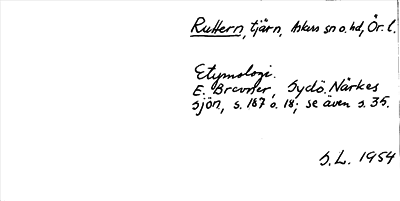 Ruttern, tjärn, Askers sn o. hd, Ör. l.
Etymologi.
E. Brevner, Sydö. Närkes
sjön, s. 167 o. 18; se även s. 35.
S.L. 1954